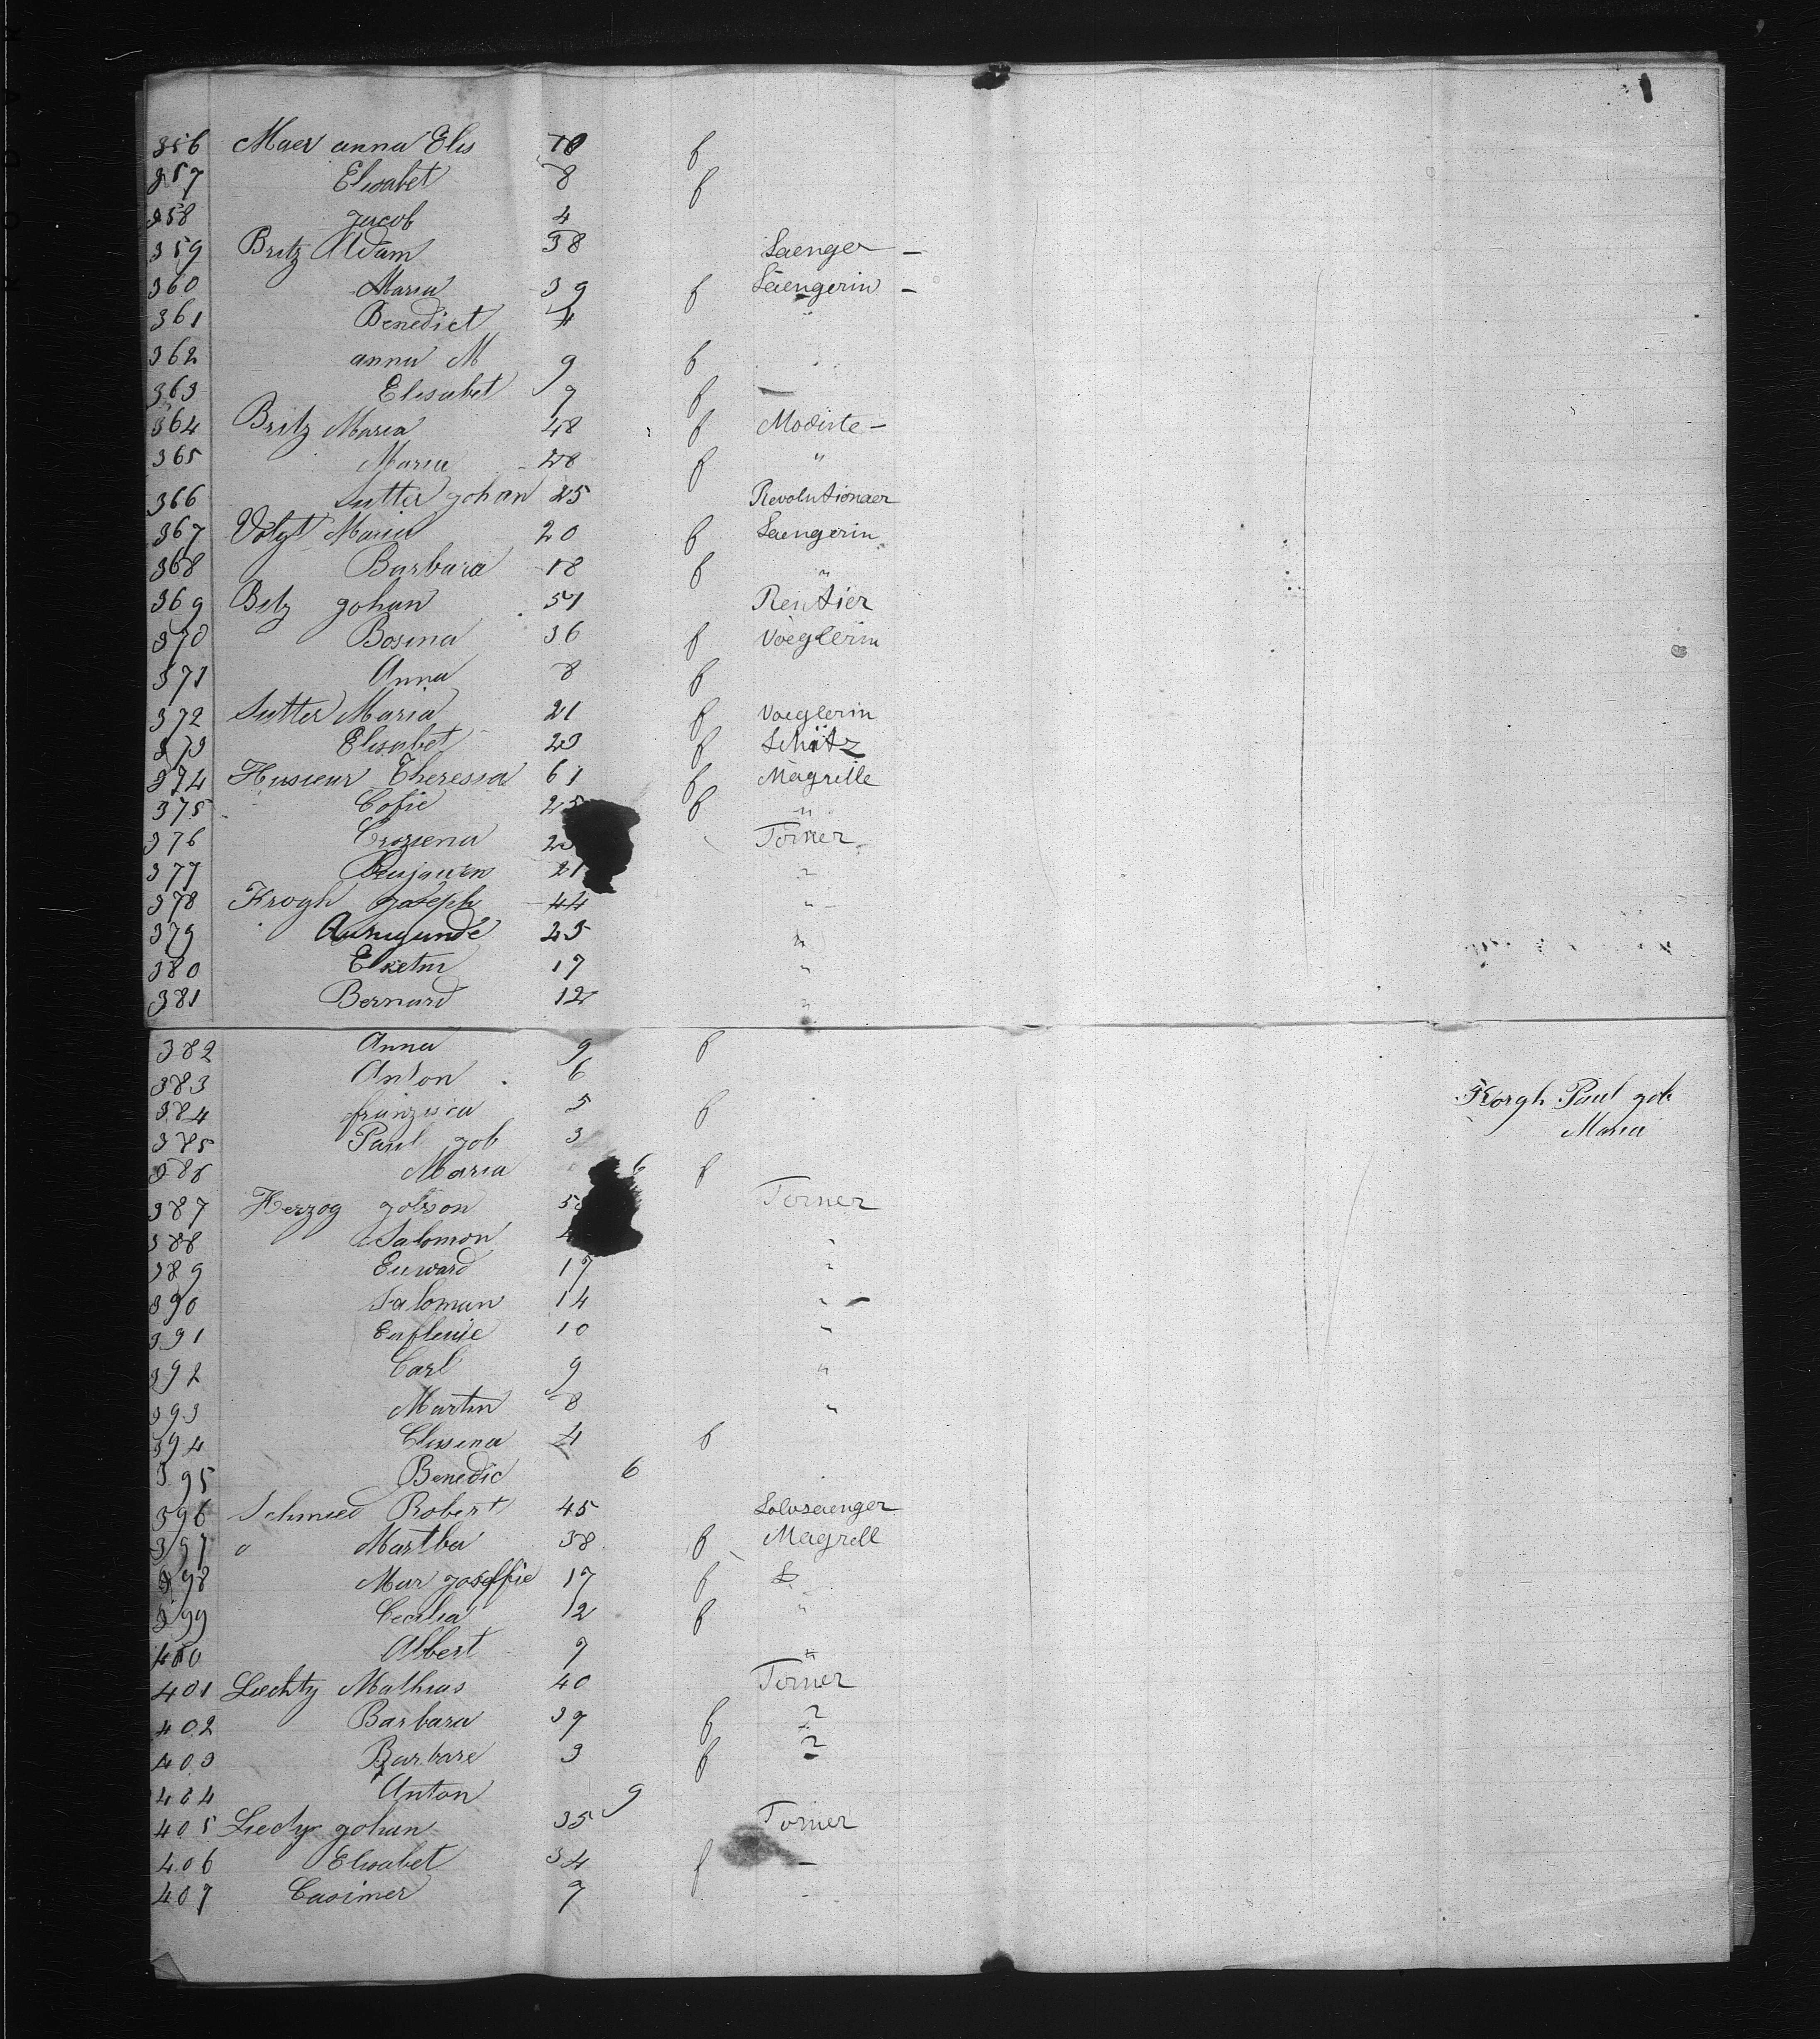 1
356 Maer anna Elis 10 f
357 Elisabet 8 f
358 Jacob 4
359 Britz Adam 38 Saenger –
360 Maria 39 f Säengerin –
361 Benedict 4 "
362 anna M 9 f "
363 Elisabet 7 f —
364 Britz Maria 48 f Modiste –
365 Maria 28 f "
366 Sutter Johan 25 Revolutionaer
367 Voigt Maria 20 f Saengerin
368 Barbara 18 f "
369 Betz Johan 51 Rentier
370 Bosina 36 f Voeglerin
371 Anna 8 f
372 Sutter Maria 21 f Voeglerin
373 Elisabet 23 f
374 Husieur Theressa 61 f Magrelle
375 Cofie 25 f "
376 Torner
377 Benjamin 21 "
378 Krogh Joseph 44 "
379 23 "
380 17 "
381 Bernard 12 "
382 Anna 9 f
383 Anton 6
384 franzisca 5 f
385 Paul Job 3
386 Maria 6 f
Korgh Paul Job
Maria
387 Herzog Jobson Torner
388 Salomon "
389 Euward 17 "
390 Saloman 14 "
391 10 "
392 Carl 9 "
393 Martin 8 "
394 4 f
395 Benedic 6
396 Schmied Robert 45 Solosaenger
397 " Martha 38 f Magrell
398 Mar Joseffie 17 f
399 Cecilia 12 f "
400 Albert 7 "
401 Liechty Mathias 40 Torner
402 Barbara 37 f "
403 Barbare 3 f "
404 Anton 9
405 Liechy Johan 35 Torner
406 Elisabet 34 f –
407 Casimer 7